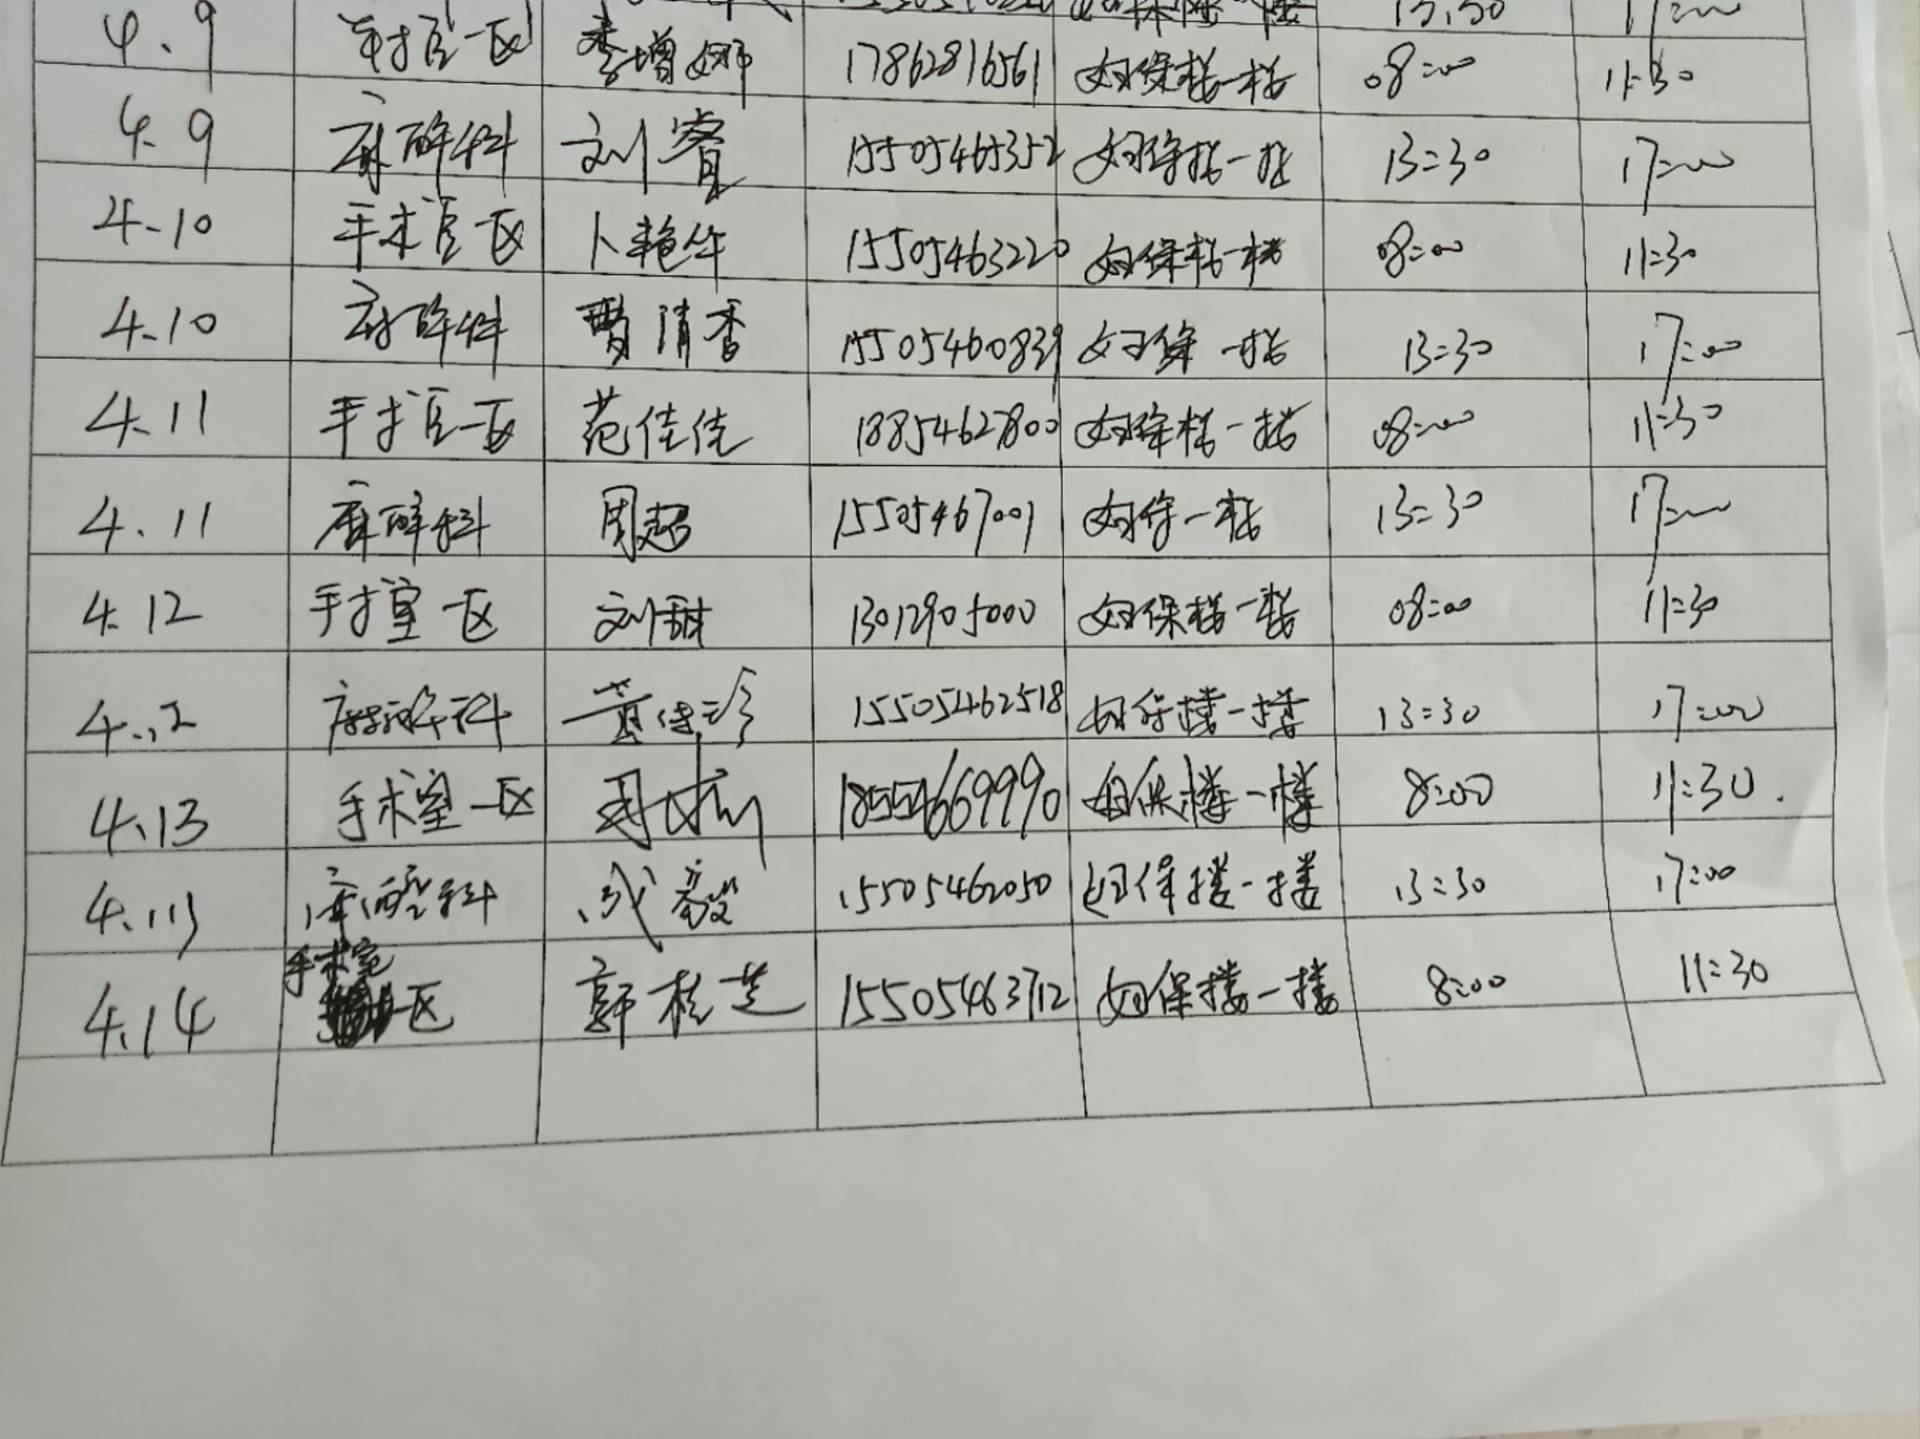 4.9 手术室一区 李增娜 17862816561 妇保楼一楼 08:00 11:30
4.9 麻醉科 刘睿 15505465352 妇保楼一楼 13:30 17:00
4.10 手术室一区 卜艳华 15505463220 妇保楼一楼 08:00 11:30
4.10 麻醉科 贾清香 15505460839 妇保一楼 13:30 17:00
4.11 手术室一区 范佳佳 18854627800 妇保楼一楼 08:00 11:30
4.11 麻醉科 周超 15505467001 妇保一楼 13:30 17:00
4.12 手术室一区 刘甜 13012905000 妇保楼一楼 08:00 11:30
4.12 麻醉科 黄 15505462518 妇保楼一楼 13:30 17:00
4.13 手术室一区 周 18554669990 妇保楼一楼 8:00 11:30.
4.13 麻醉科 成毅 15505462050 妇保楼一楼 13:30 17:00
4.14 手术室一区 郭桂芝 15505463712 妇保楼一楼 8:00 11:30